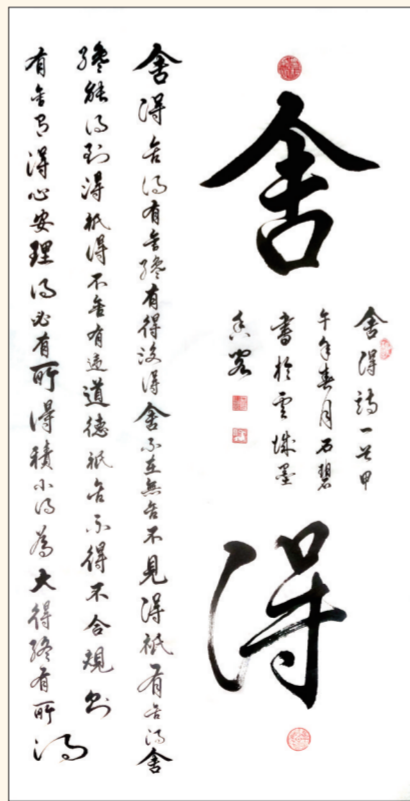 舍得
舍得詩一首甲
午年春月石碧
書於雲城墨
香
舍得舍得有舍纔有得沒得舍不在無舍不見得祇有舍得舍
纔能得到得祇得不舍有違道德祇舍不得不合規則
有舍有得心安理得必有所得積小得為大得終有所得